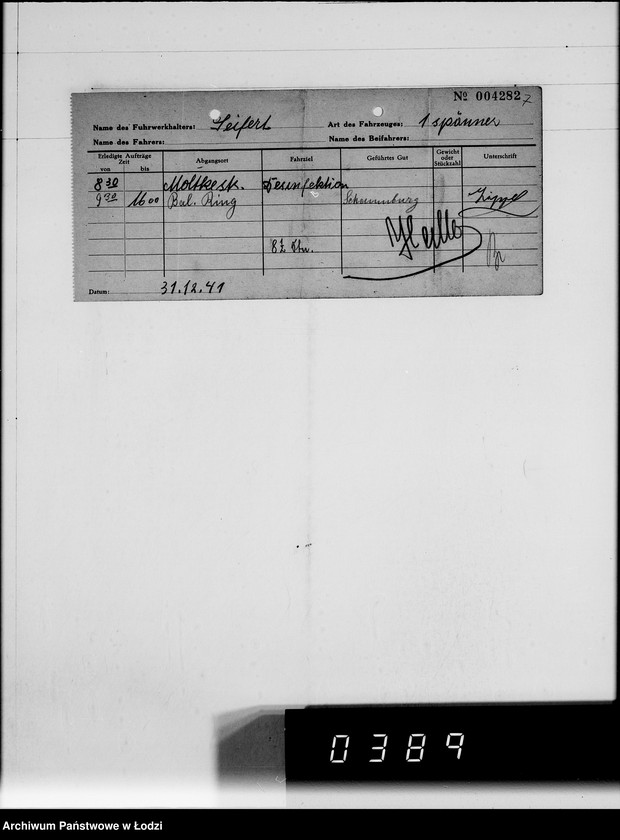 № 004282
Name des Fuhrwerkhalters: Seifert Art des Fahrzeuges: 1 spänner
Name des Fahrers: Name des Beifahrers:
Erledigte Aufträge Zeit von bis Abgangsort Fahrziel Geführtes Gut Gewicht oder Stückzahl Unterschrift
8 30 Moltkestr. Desinfektion
9 30 16 00 Bal. Ring
Datum: 31.12.41
0389
Archiwum Państwowe w Łodzi